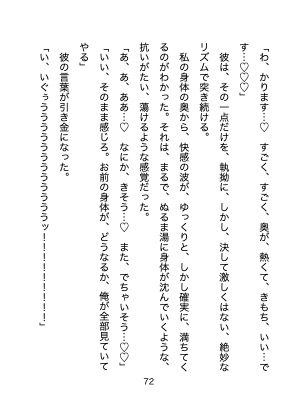 「わ、かります…♡　すごく、すごく、奥が、熱くて、きもち、いい…で
す…♡♡♡」
　彼は、その一点だけを、執拗に、しかし、決して激しくはない、絶妙な
リズムで突き続ける。
　私の身体の奥から、快感の波が、ゆっくりと、しかし確実に、満ちてく
るのがわかった。それは、まるで、ぬるま湯に身体が沈んでいくような、
抗いがたい、蕩けるような感覚だった。
「あ、あ、ああ…♡　なにか、きそう…♡　また、でちゃいそう…♡♡」
「いい、そのまま感じろ。お前の身体が、どうなるか、俺が全部見ていて
やる」
　彼の言葉が引き金になった。
「い、いぐぅううううううううううううッ！！！！！！！！」
72